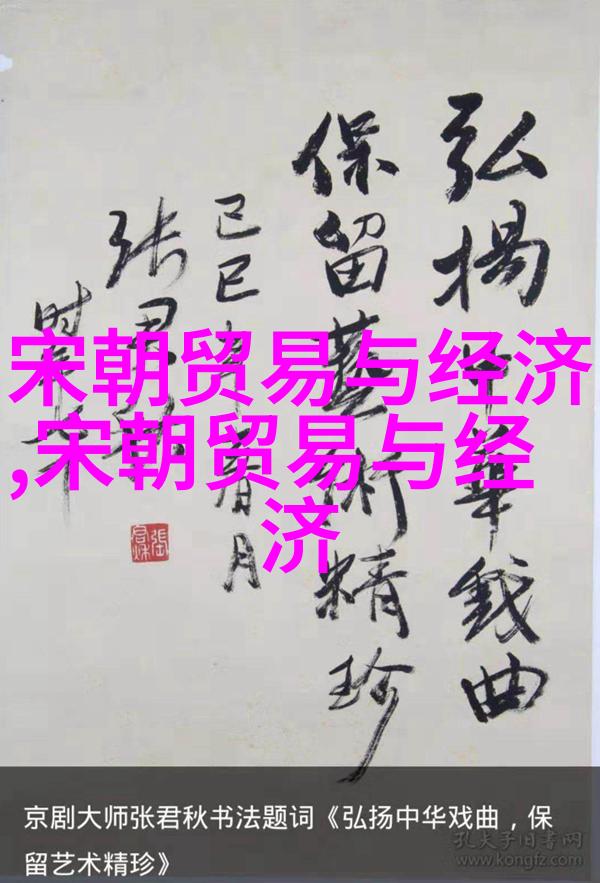 弘揚中華戲曲
保留藝術精珍
己巳年春月
张君秋
宋朝贸易与经济
,宋朝贸易与经
济
京剧大师张君秋书法题词《弘扬中华戏曲，保
留艺术精珍》
孔夫子旧书网
www.kongfz.com